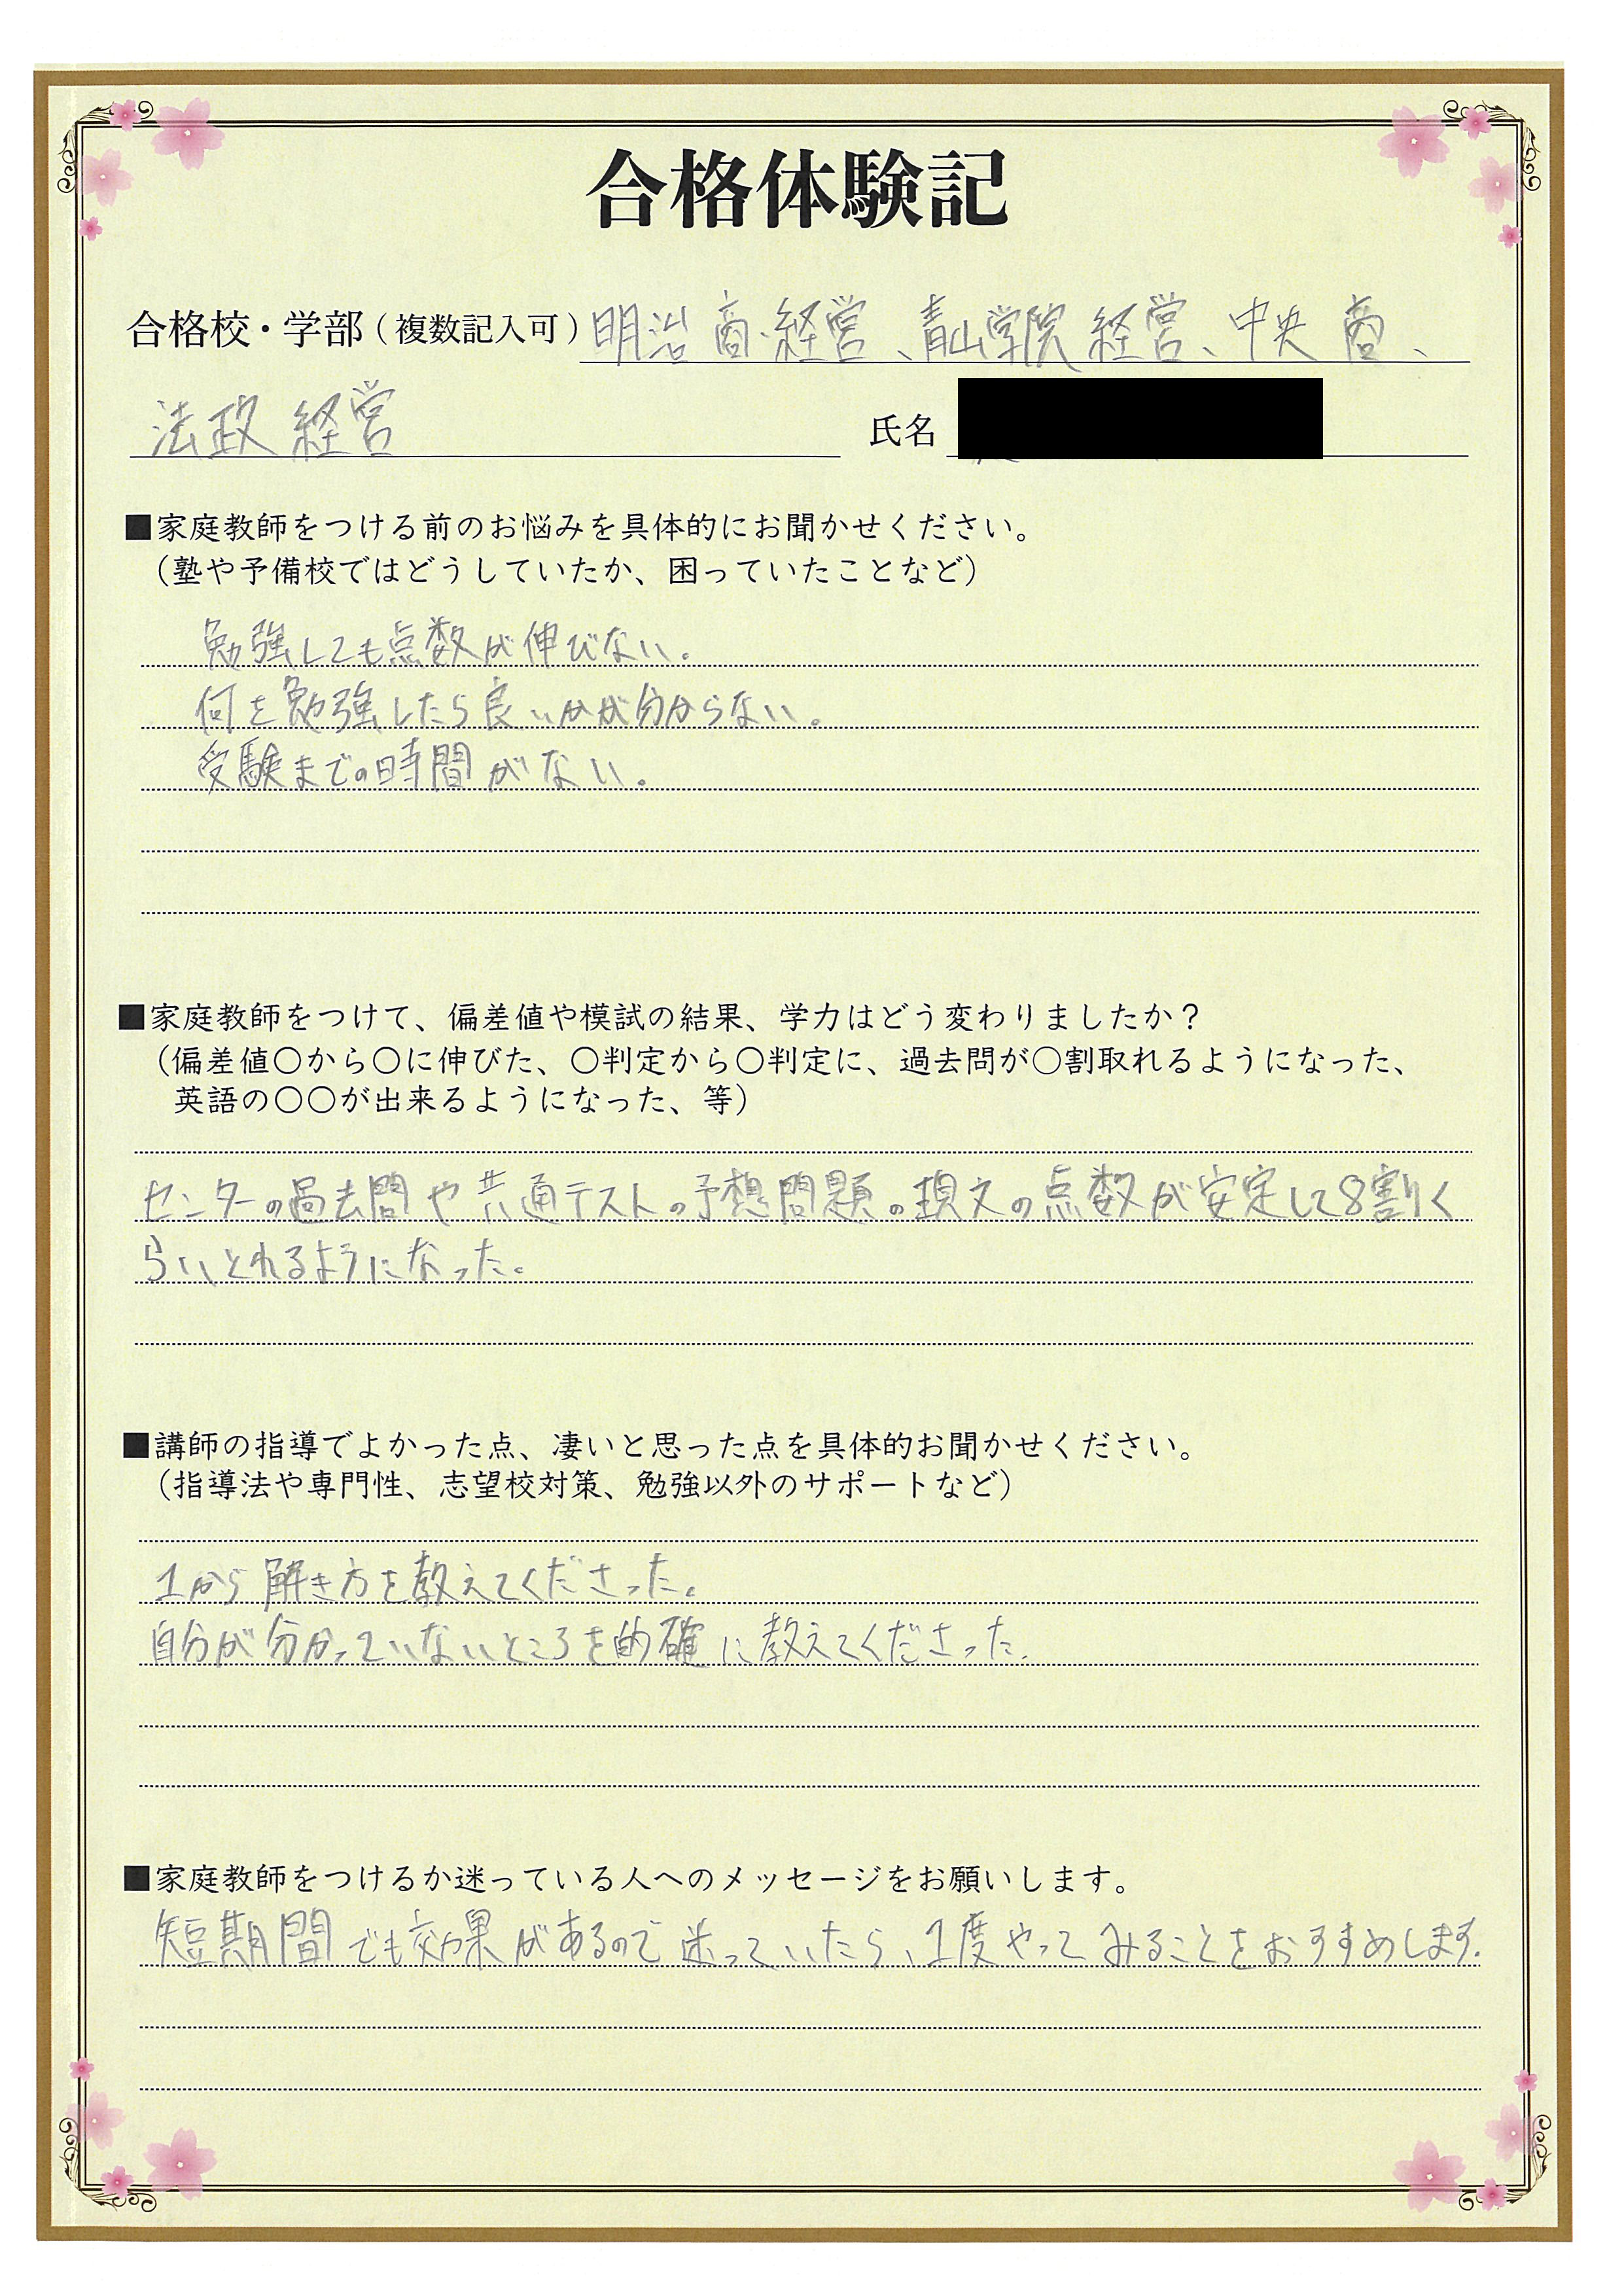 合格体験記
合格校・学部（複数記入可）明治 商・経営、青山学院 経営、中央 商、
法政 経営 氏名
■家庭教師をつける前のお悩みを具体的にお聞かせください。
（塾や予備校ではどうしていたか、困っていたことなど）
勉強しても点数が伸びない。
何を勉強したら良いかが分からない。
受験までの時間がない。
■家庭教師をつけて、偏差値や模試の結果、学力はどう変わりましたか？
（偏差値〇から〇に伸びた、〇判定から〇判定に、過去問が〇割取れるようになった、
英語の〇〇が出来るようになった、等）
センターの過去問や共通テストの予想問題の現文の点数が安定して8割く
らいとれるようになった。
■講師の指導でよかった点、凄いと思った点を具体的お聞かせください。
（指導法や専門性、志望校対策、勉強以外のサポートなど）
1から解き方を教えてくださった。
自分が分かっていないところを的確に教えてくださった。
■家庭教師をつけるか迷っている人へのメッセージをお願いします。
短期間でも効果があるので迷っていたら、1度やってみることをおすすめします。